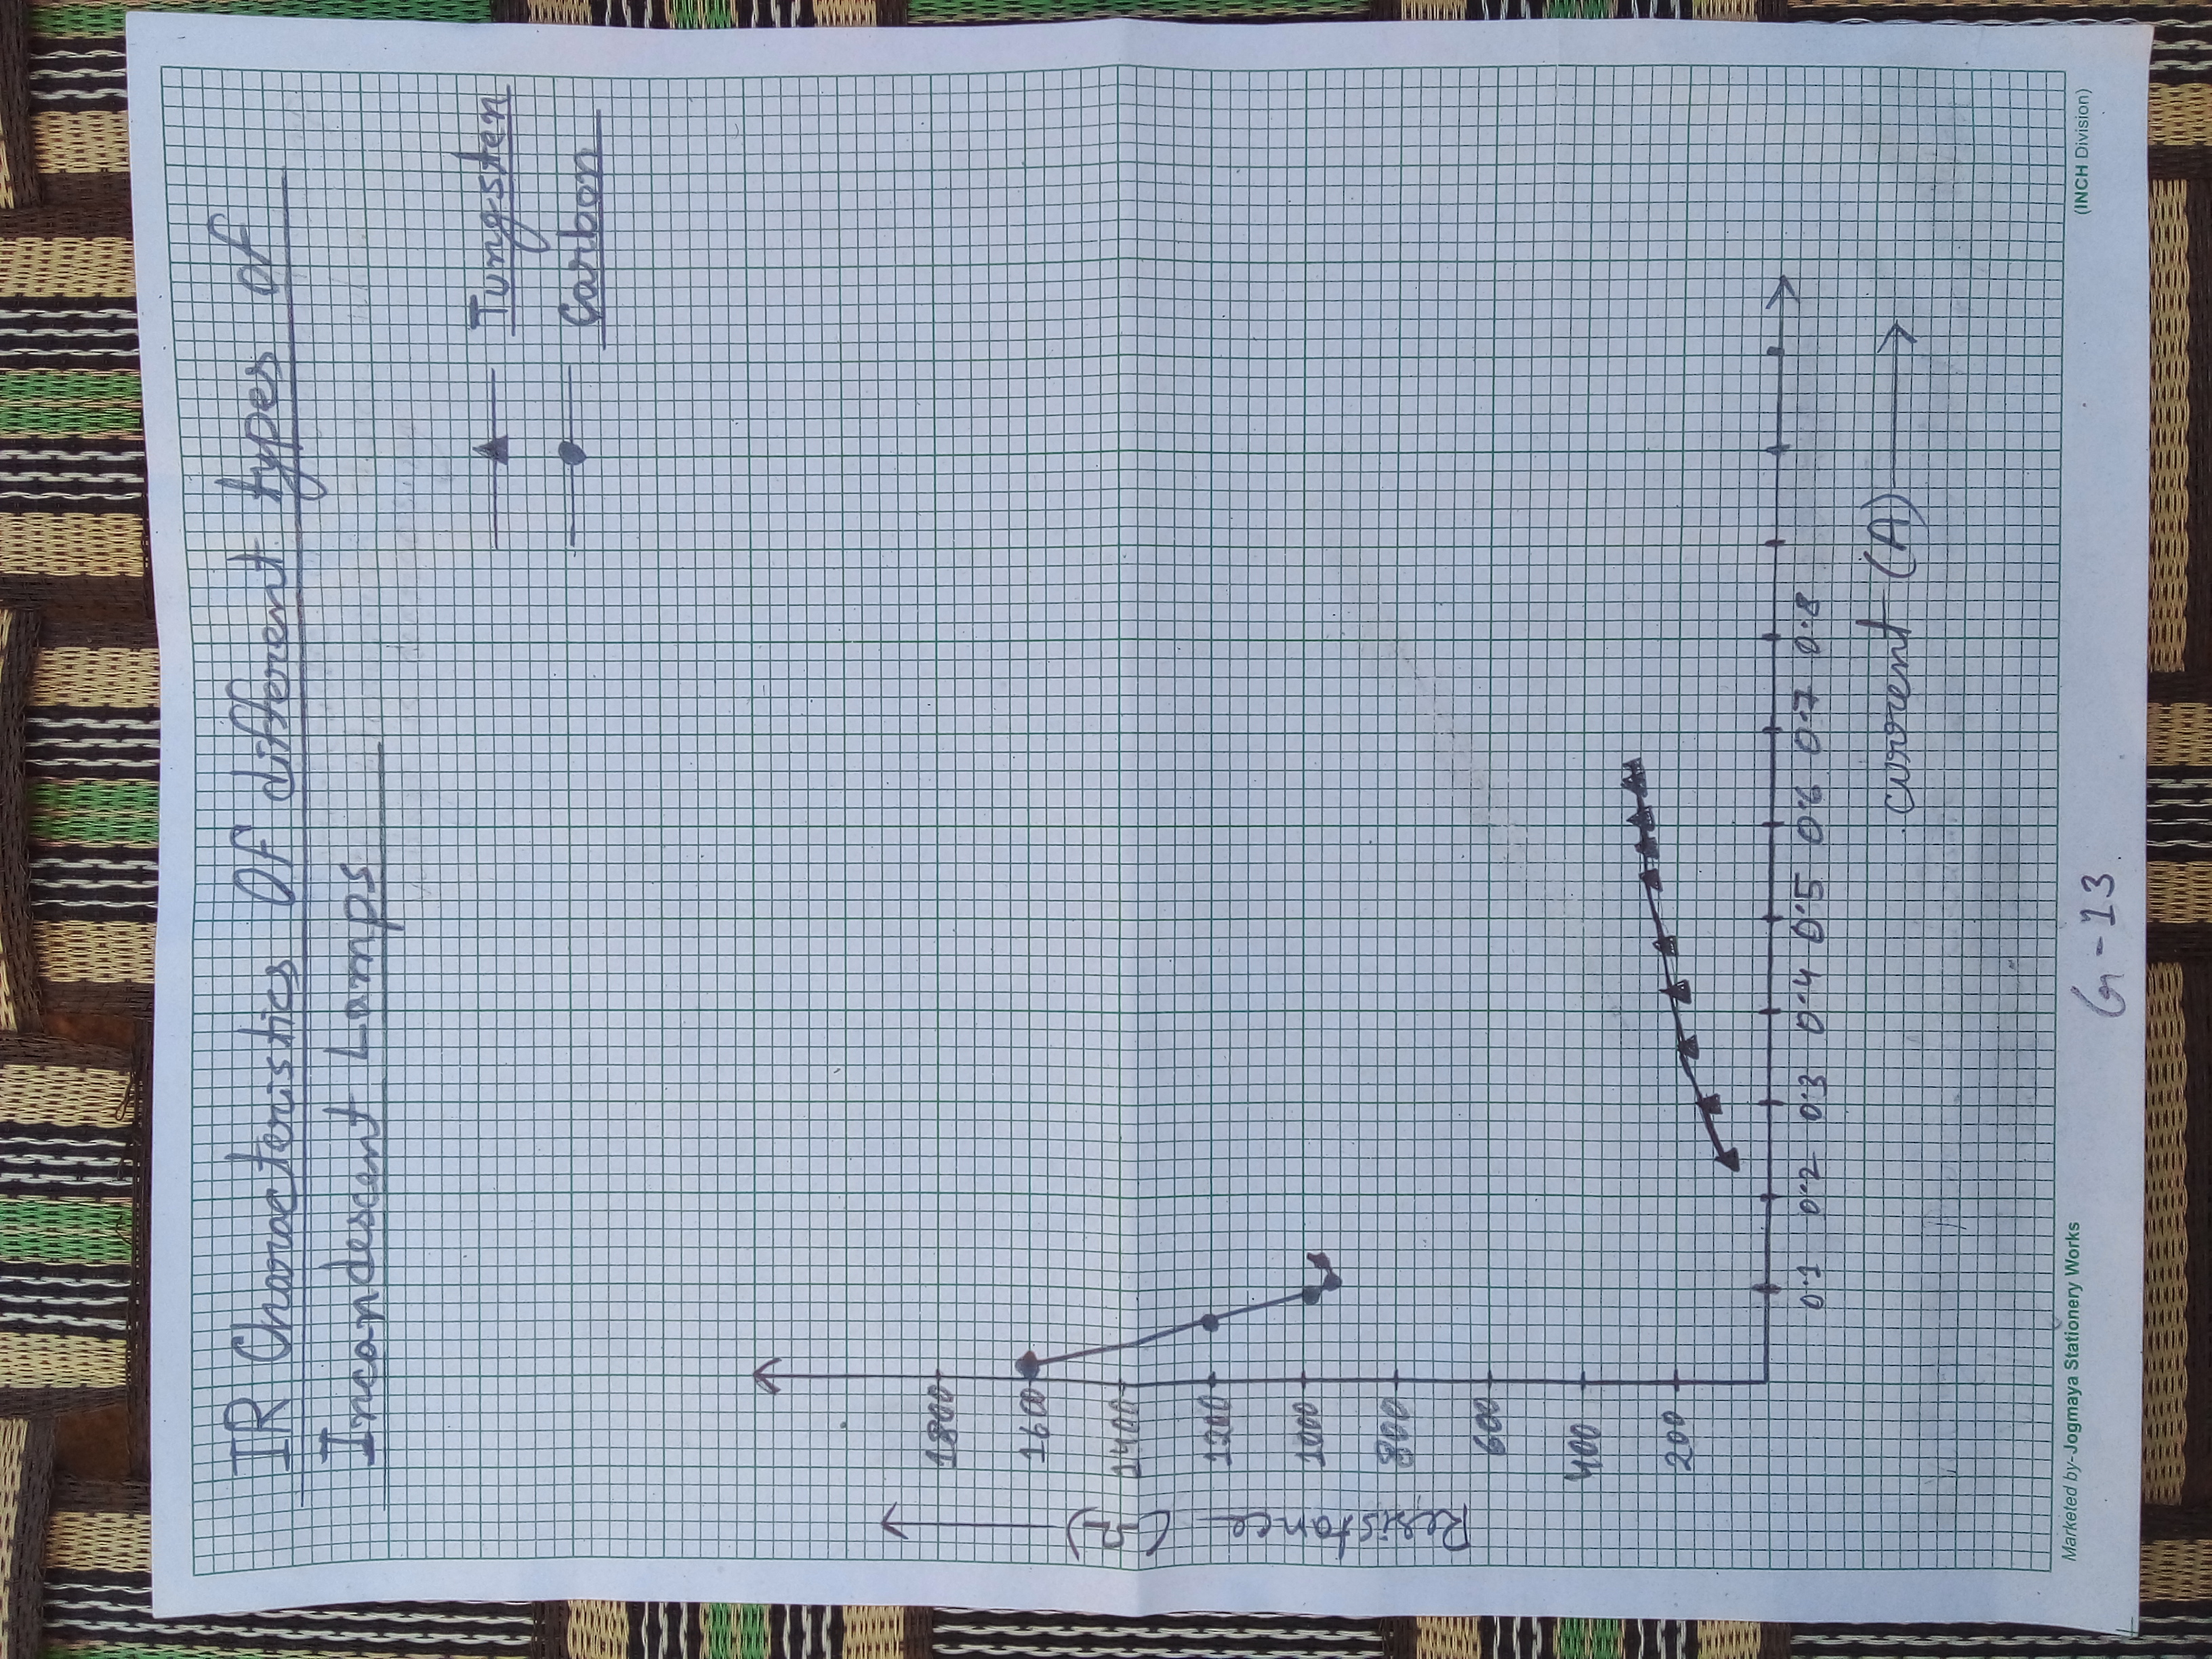 IR Characteristics Of different types of
Incandescent Lamps
Tungsten
Carbon
Resistance (Ω)
1800
1600
1400
1200
1000
800
600
400
200
0.1 0.2 0.3 0.4 0.5 0.6 0.7 0.8
current (A)
Marketed by-Jogmaya Stationery Works
(INCH Division)
G-13